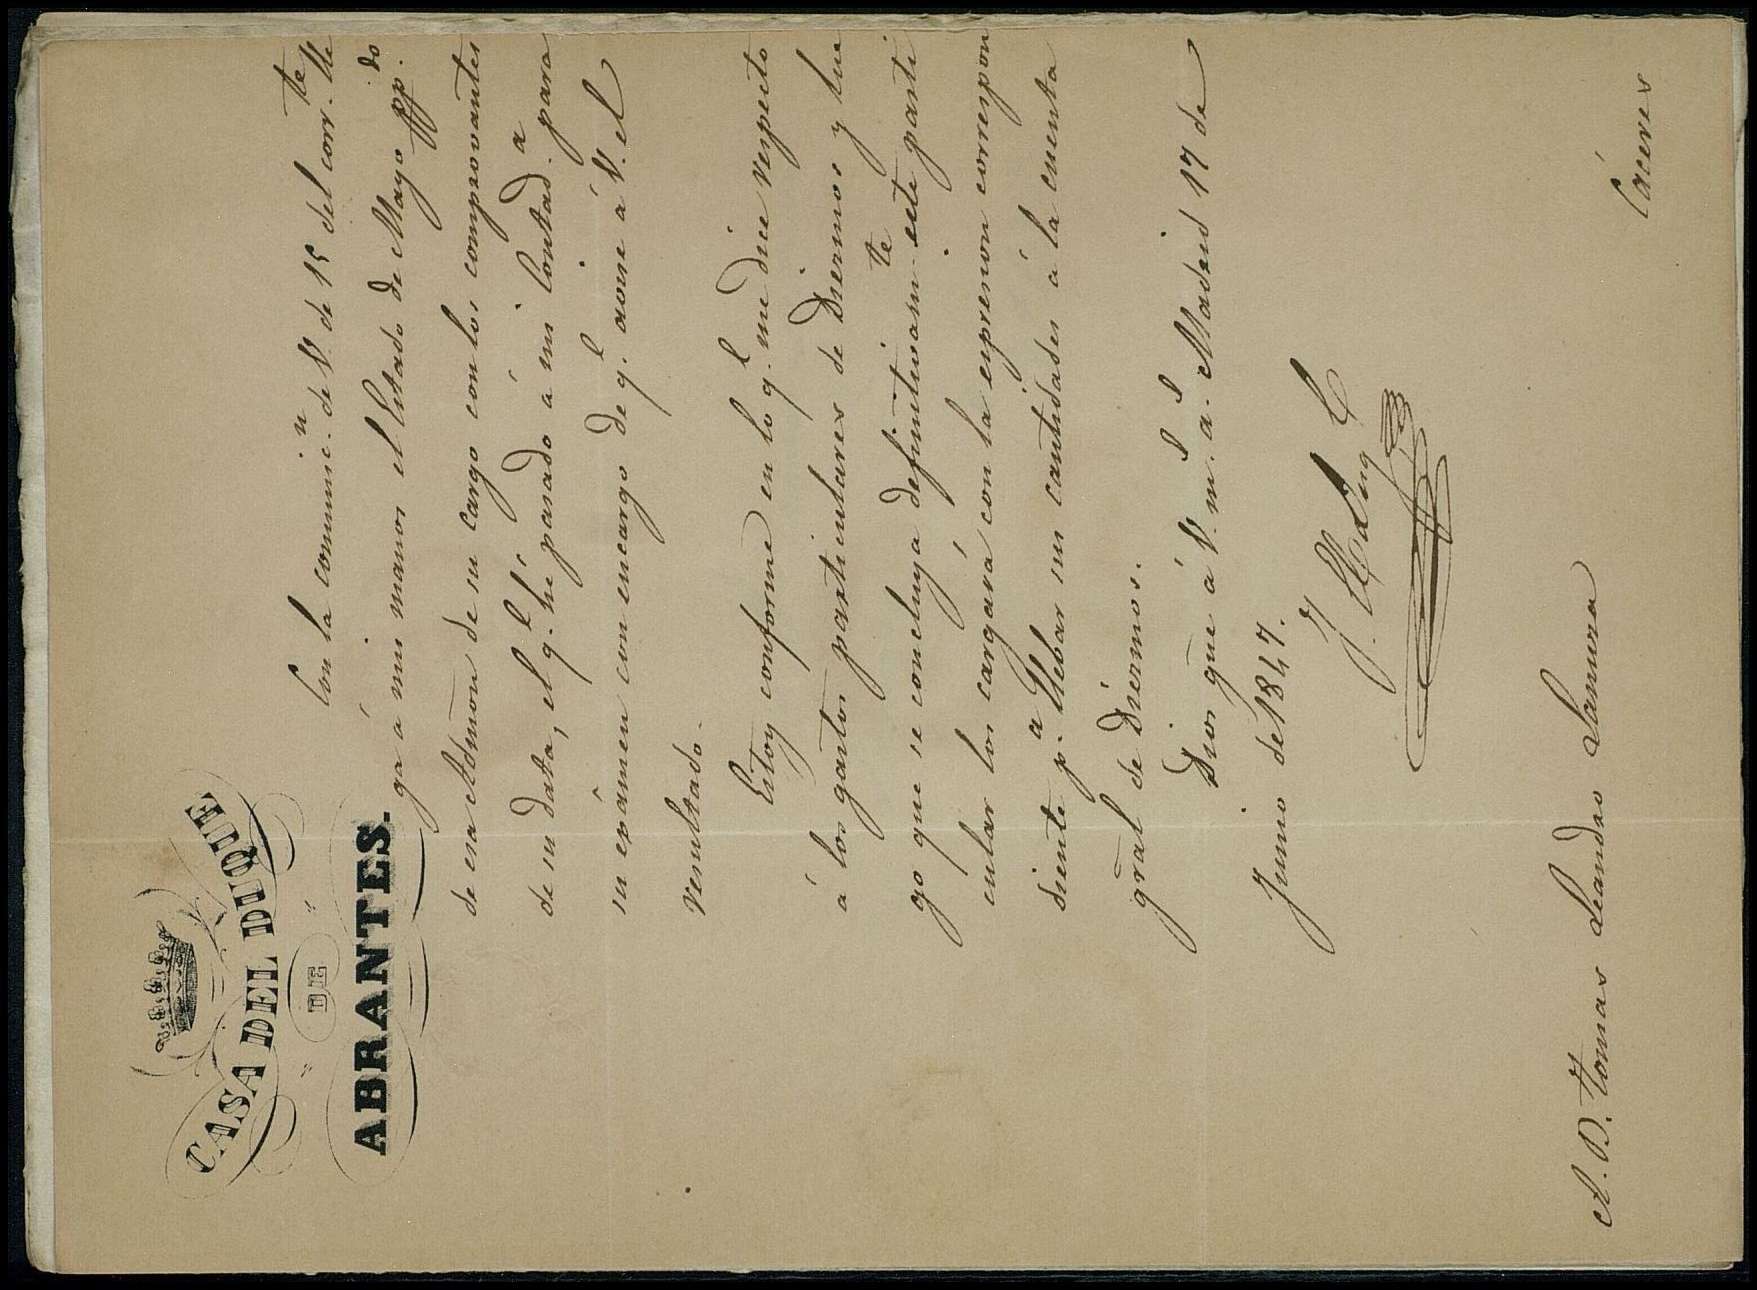 CASA DEL DUQUE
DE
ABRANTES.
Con la comunic.n de V. de 15 del corr.te lle
ga á mis manos el Estado de Mayo pp.do
de esa Admon de su cargo con los comprovantes
de su data, el q.l hé pasado á mi Contad.a para
su exámen con encargo de q.l avise á V. el
resultado.
Estoy conforme en lo q.l me dice respecto
á los gastos particulares de Diezmos y lue
go que se concluya definitivam.te este parti
cular los cargará con la expresion correspon
diente p.a llebar sus cantidades á la cuenta
gral de Diezmos.
Dios gue á V. m.s a.s Madrid 17 de
Junio de 1847.
A. D. Tomas Leandro
Cáceres